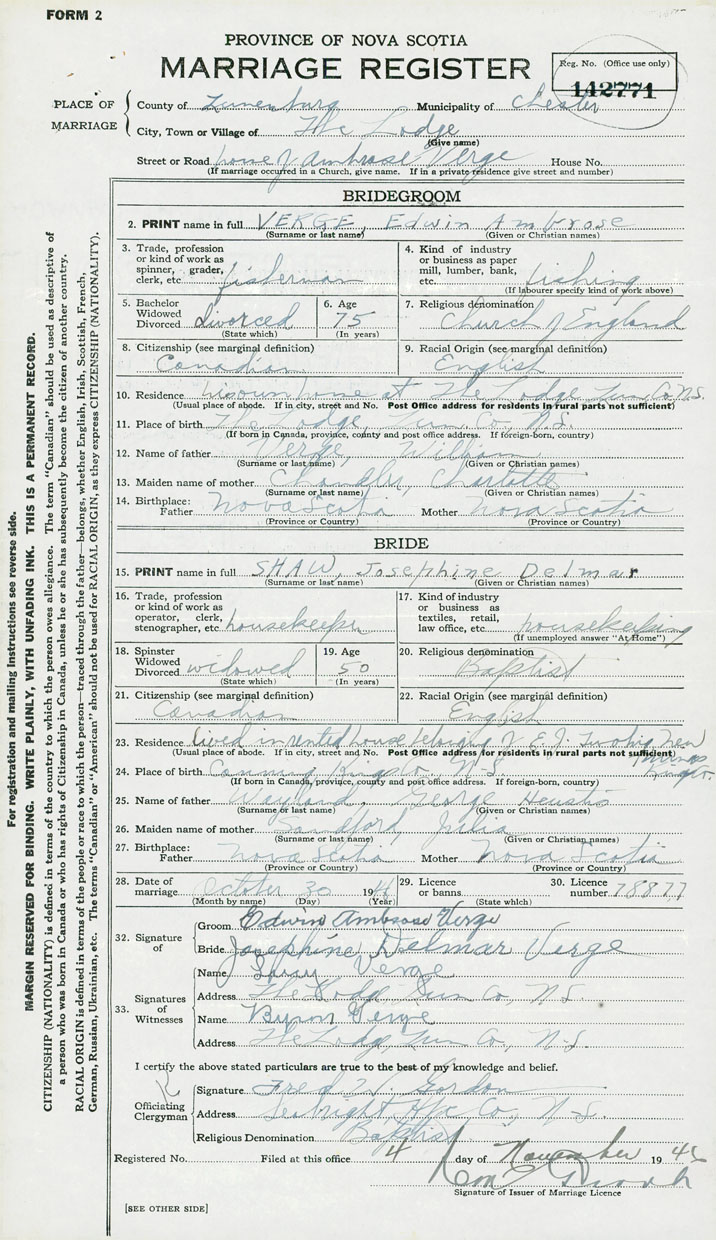 FORM 2
PROVINCE OF NOVA SCOTIA
MARRIAGE REGISTER
Reg. No. (Office use only)
142771
PLACE OF MARRIAGE
County of Lunenburg Municipality of Chester
City, Town or Village of The Lodge
(Give name)
Street or Road home of Ambrose Verge House No.
(If marriage occurred in a Church, give name. If in a private residence give street and number)
BRIDEGROOM
2. PRINT name in full VERGE, Edwin Ambrose
(Surname or last name) (Given or Christian names)
3. Trade, profession or kind of work as spinner, grader, clerk, etc. fisherman
4. Kind of industry or business as paper mill, lumber, bank, etc. fishing
(If labourer specify kind of work above)
5. Bachelor Widowed Divorced divorced
(State which)
6. Age 75
(In years)
7. Religious denomination Church of England
8. Citizenship (see marginal definition) Canadian
9. Racial Origin (see marginal definition) English
10. Residence his own home at The Lodge Lun. Co. N.S.
(Usual place of abode. If in city, street and No. Post Office address for residents in rural parts not sufficient)
11. Place of birth The Lodge, Lun. Co., N.S.
(If born in Canada, province, county and post office address. If foreign-born, country)
12. Name of father Verge, William
(Surname or last name) (Given or Christian names)
13. Maiden name of mother Chandler, Charlotte
(Surname or last name) (Given or Christian names)
14. Birthplace: Father Nova Scotia Mother Nova Scotia
(Province or Country) (Province or Country)
BRIDE
15. PRINT name in full SHAW, Josephine Delmar
(Surname or last name) (Given or Christian names)
16. Trade, profession or kind of work as operator, clerk, stenographer, etc. housekeeper
17. Kind of industry or business as textiles, retail, law office, etc. housekeeping
(If unemployed answer "At Home")
18. Spinster Widowed Divorced widowed
(State which)
19. Age 50
(In years)
20. Religious denomination Baptist
21. Citizenship (see marginal definition) Canadian
22. Racial Origin (see marginal definition) English
23. Residence lived in rented house belonging of E. J. New
(Usual place of abode. If in city, street and No. Post Office address for residents in rural parts not sufficient)
24. Place of birth Canning Kings Co. N-S
(If born in Canada, province, county and post office address. If foreign-born, country)
25. Name of father Wayland, George
(Surname or last name) (Given or Christian names)
26. Maiden name of mother Sandford, Julia
(Surname or last name) (Given or Christian names)
27. Birthplace: Father Nova Scotia Mother Nova Scotia
(Province or Country) (Province or Country)
28. Date of marriage October 30 1946
(Month by name) (Day) (Year)
29. Licence or banns
(State which)
30. Licence number 78877
32. Signature of
Groom Edwin Ambrose Verge
Bride Josephine Delmar Verge
33. Signatures of Witnesses
Name Verge
Address The Lodge Lun Co, N-S.
Name Byron Verge
Address The Lodge, Lun Co., N-S.
I certify the above stated particulars are true to the best of my knowledge and belief.
Officiating Clergyman
Signature Fred W. Gordon
Address Seabright, Hfx Co., N-S.
Religious Denomination Baptist
Registered No. Filed at this office 4 day of November 1946
Signature of Issuer of Marriage Licence
[SEE OTHER SIDE]
For registration and mailing instructions see reverse side.
MARGIN RESERVED FOR BINDING. WRITE PLAINLY, WITH UNFADING INK. THIS IS A PERMANENT RECORD.
CITIZENSHIP (NATIONALITY) is defined in terms of the country to which the person owes allegiance. The term "Canadian" should be used as descriptive of
a person who was born in Canada or who has rights of Citizenship in Canada, unless he or she has subsequently become the citizen of another country.
RACIAL ORIGIN is defined in terms of the people or race to which the person—traced through the father—belongs, whether English, Irish, Scottish, French,
German, Russian, Ukrainian, etc. The terms "Canadian" or "American" should not be used for RACIAL ORIGIN, as they express CITIZENSHIP (NATIONALITY).